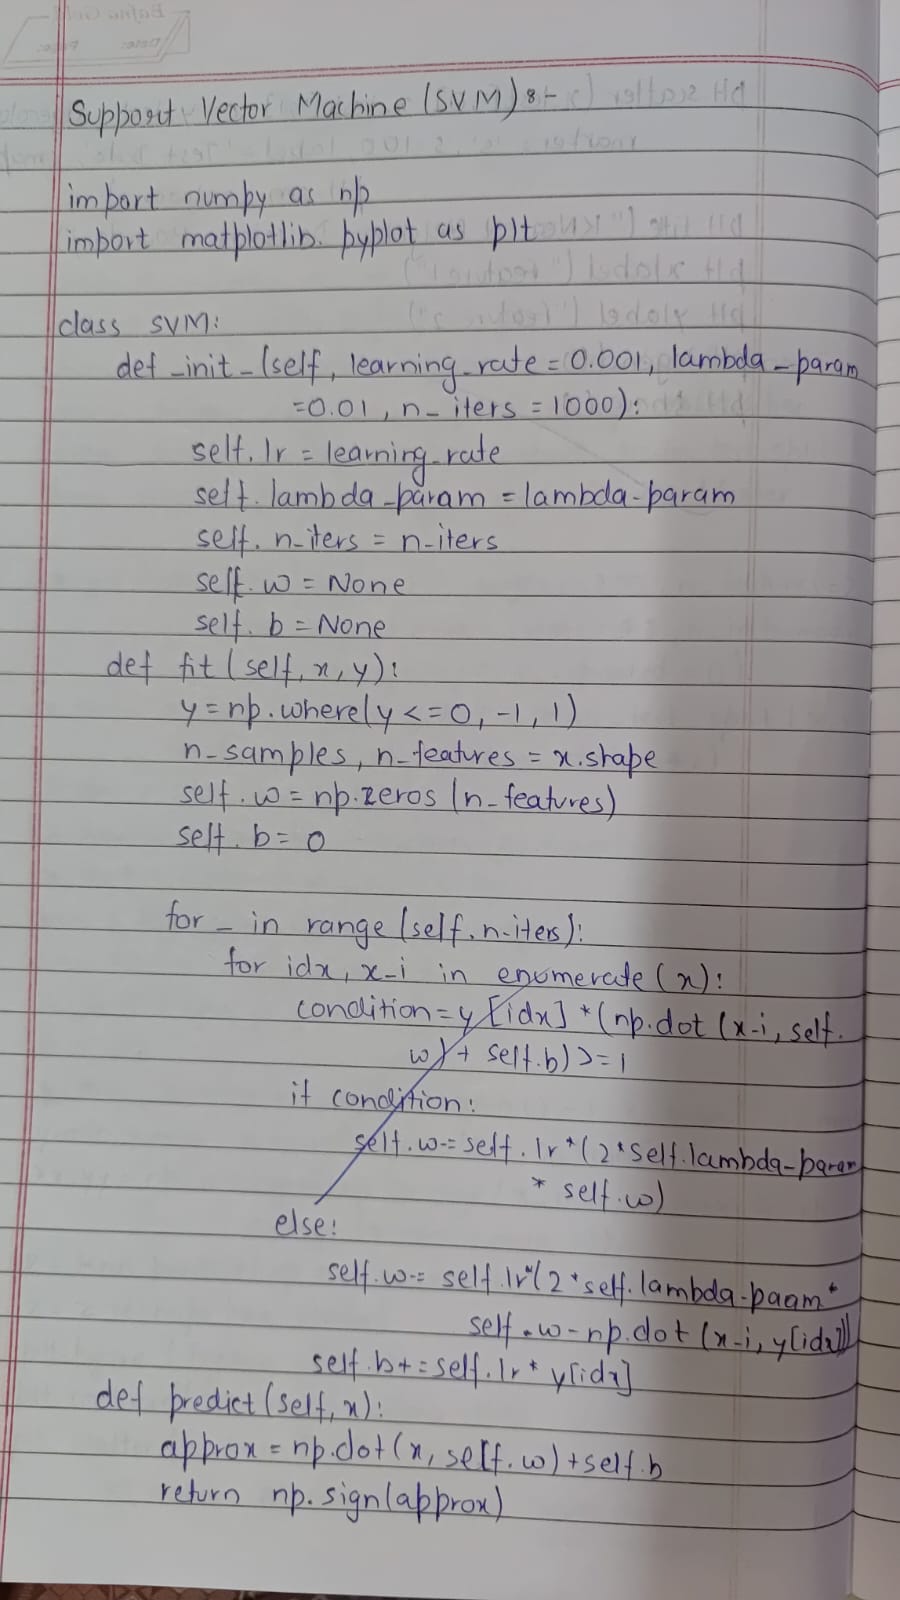 Support Vector Machine (SVM) :-
import numpy as np
import matplotlib. pyplot as plt
class SVM:
def _init_(self, learning_rate = 0.001, lambda_param
=0.01, n_iters = 1000):
self. lr = learning_rate
self. lambda_param = lambda_param
self. n_iters = n_iters
self. w = None
self. b = None
def fit (self, x, y):
y = np.where(y <= 0, -1, 1)
n_samples, n_features = x.shape
self. w = np.zeros (n_features)
self. b = 0
for _ in range (self.n_iters):
for idx, x_i in enumerate (x):
condition = y [idx] * (np.dot (x_i, self.
w) + self.b) >= 1
if condition:
self.w -= self. lr * (2 * self.lambda_param
* self.w)
else:
self.w -= self.lr * (2 * self.lambda_paam *
self.w - np.dot (x_i, y[idx]))
self.b += self.lr * y[idx]
def predict (self, x):
approx = np.dot (x, self.w) + self.b
return np.sign(approx)